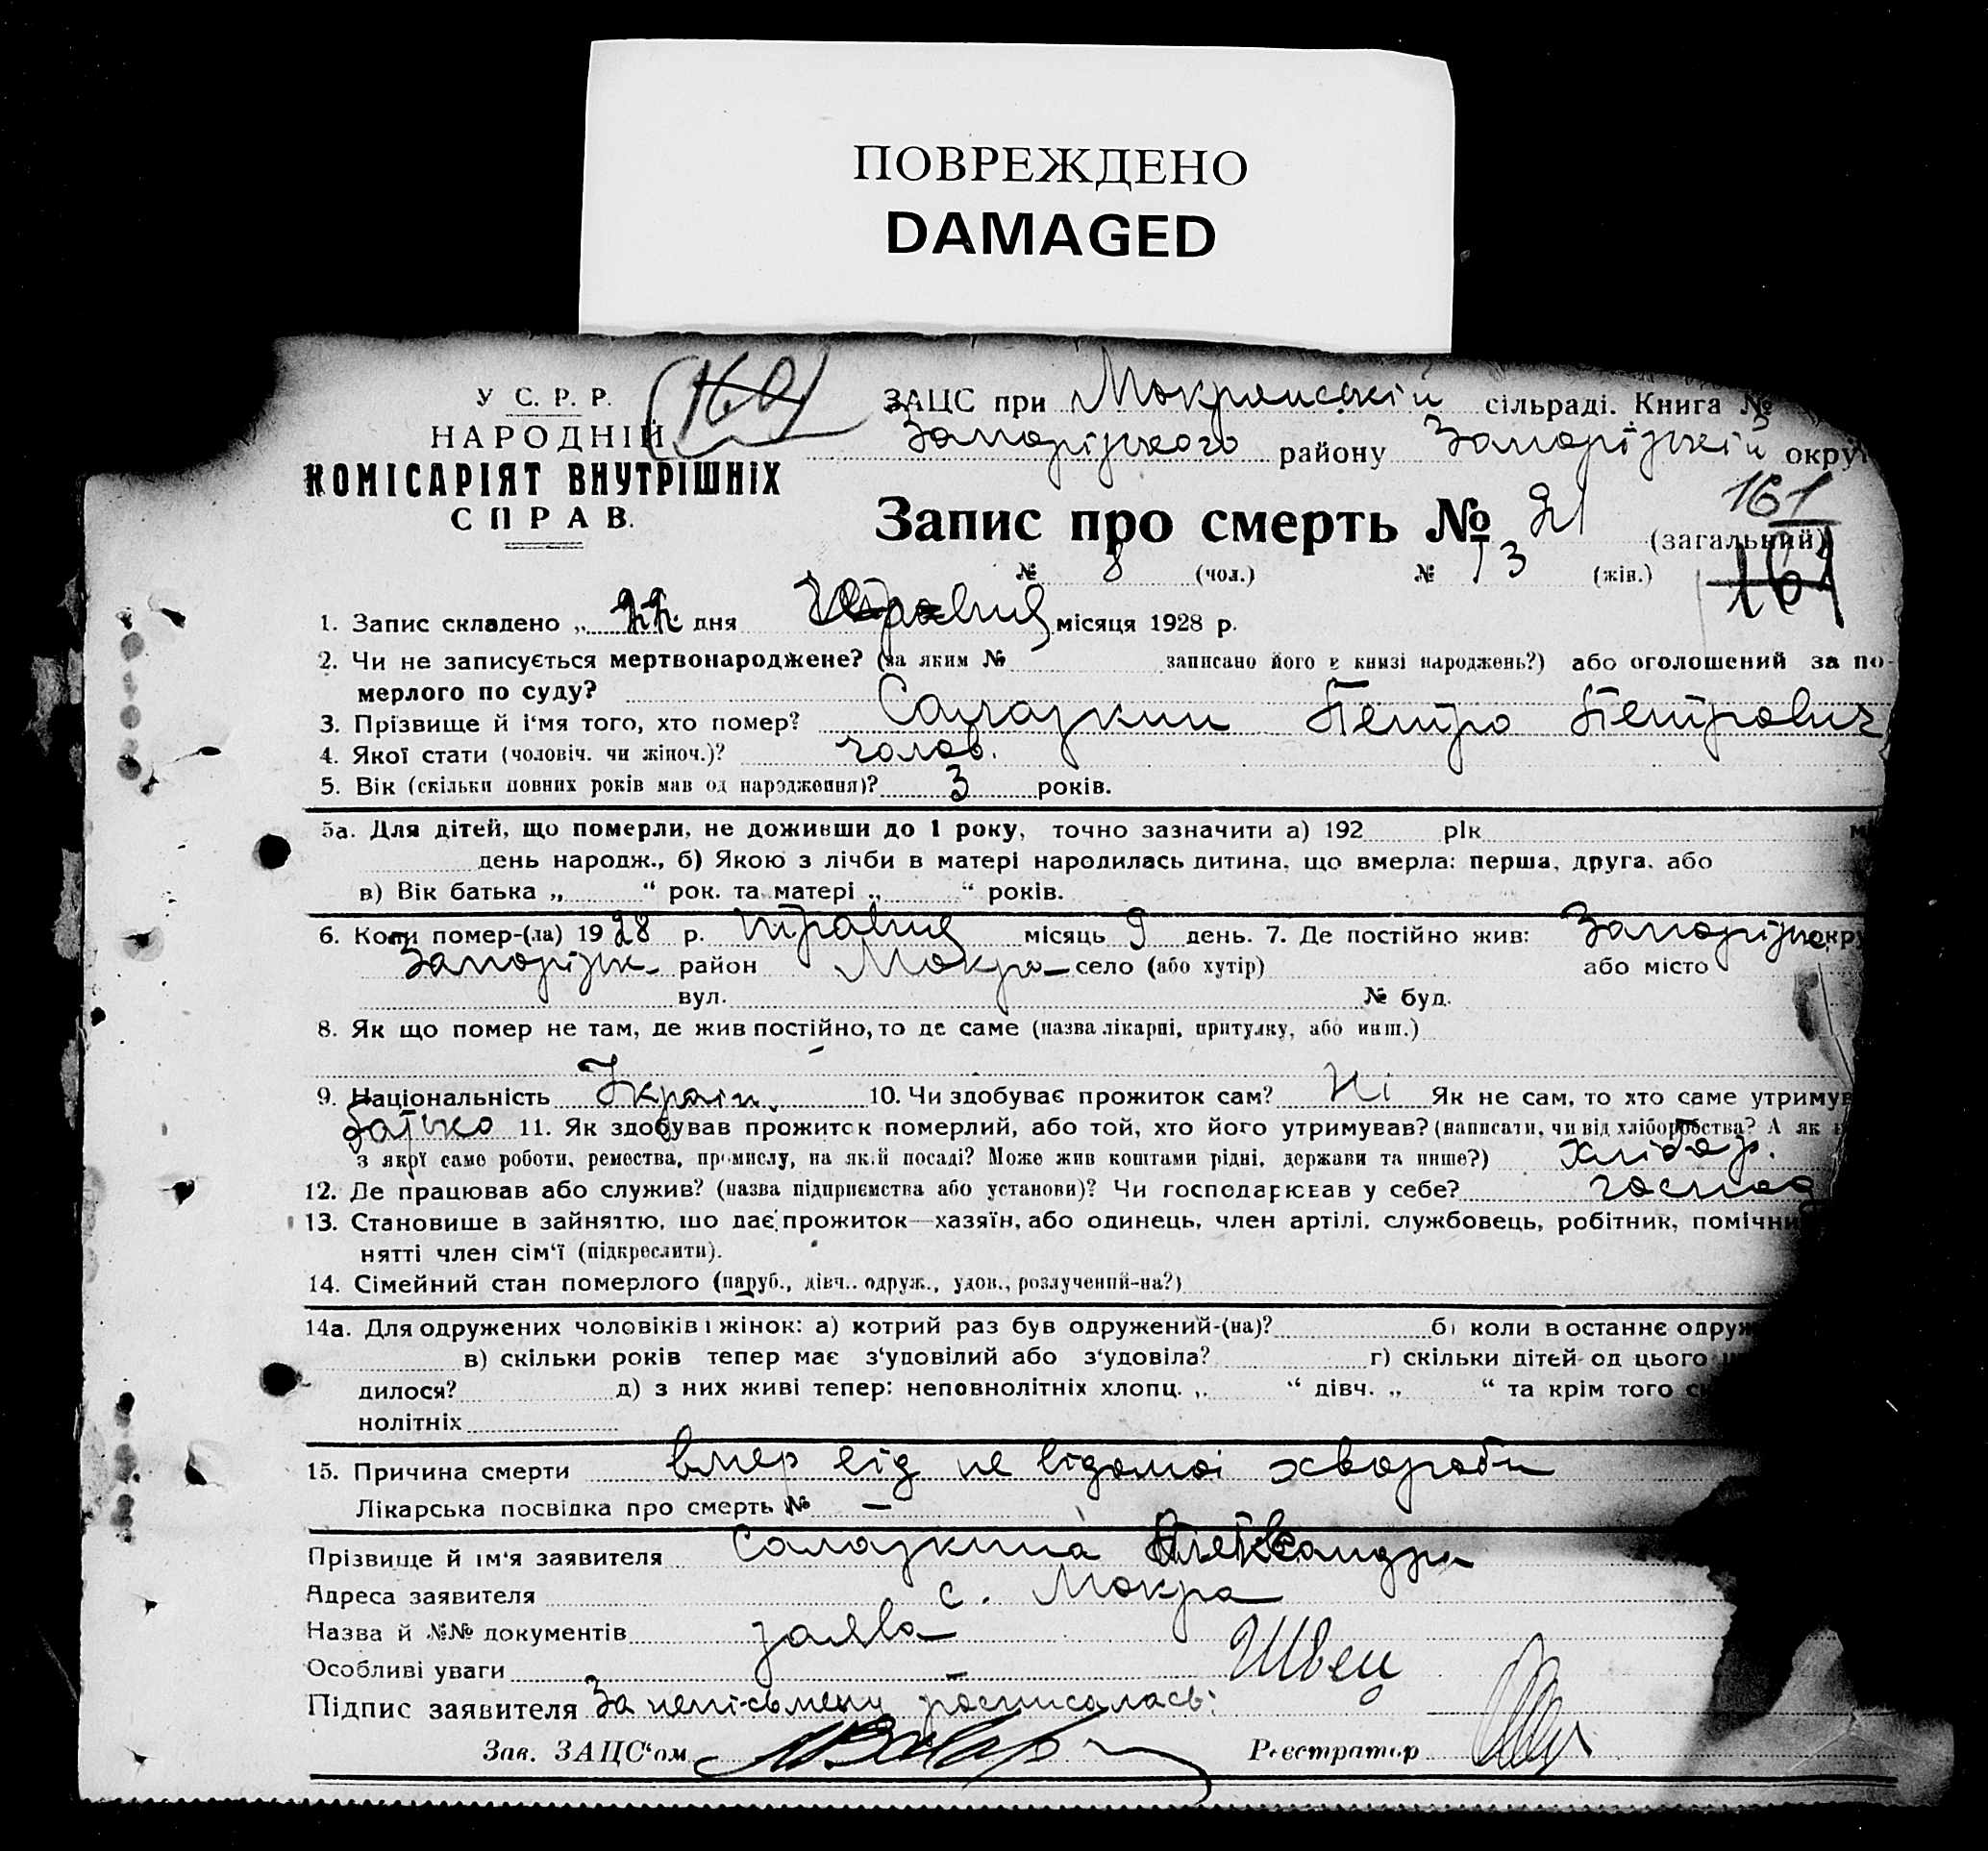 ПОВРЕЖДЕНО
DAMAGED
У С. Р. Р.
НАРОДНІЙ
КОМІСАРІЯТ ВНУТРІШНІХ
СПРАВ.
160
ЗАЦС при Мокрянській сільраді. Книга №
Запорізького району Запорізькій округ
161
Запис про смерть № 21 (загальний)
№ 8 (чол.) № 13 (жін.)
161
1. Запис складено „ 22 дня Травня місяця 1928 р.
2. Чи не записується мертвонароджене? (за яким № записано його в книзі народжень?) або оголошений за по-
мерлого по суду?
3. Прізвище й і'мя того, хто помер? Салазкин Петро Петрович
4. Якої стати (чоловіч. чи жіноч.)? чолов.
5. Вік (скільки повних років мав од народження)? 3 років.
5а. Для дітей, що померли, не доживши до 1 року, точно зазначити а) 192 рік м
день народж., б) Якою з лічби в матері народилась дитина, що вмерла: перша, друга, або
в) Вік батька „ “ рок. та матері „ “ років.
6. Коли помер-(ла) 1928 р. травня місяць 9 день. 7. Де постійно жив: Запоріжж окру
Запоріжж район Мокра село (або хутір) або місто
вул. № буд.
8. Як що помер не там, де жив постійно, то де саме (назва лікарні, притулку, або инш.)
–
9. Національність Україн. 10. Чи здобуває прожиток сам? Ні Як не сам, то хто саме утримув
батько 11. Як здобував прожиток померлий, або той, хто його утримував? (написати, чи від хліборобства? А як н
з якої саме роботи, ремества, промислу, на якій посаді? Може жив коштами рідні, держави та инше?) хлібор.
12. Де працював або служив? (назва підприємства або установи)? Чи господарював у себе? господ
13. Становише в зайняттю, що дає прожиток—хазяїн, або одинець, член артілі, службовець, робітник, помічни
нятті член сім‘ї (підкреслити).
14. Сімейний стан померлого (паруб., дівч., одруж., удов., розлучений-на?)
14а. Для одружених чоловіків і жінок: а) котрий раз був одружений-(на)? б) коли в останнє одруж
в) скільки років тепер має з‘удовілий або з‘удовіла? г) скільки дітей од цього ш
дилося? д) з них живі тепер: неповнолітніх хлопц. „ “ дівч. „ “ та крім того с
нолітніх
15. Причина смерти вмер від не відомої хвороби
Лікарська посвідка про смерть № –
Прізвище й ім'я заявителя Салазкина Александра
Адреса заявителя с. Мокра
Назва й №№ документів заява
Особливі уваги – Швец
Підпис заявителя За неписьмену росписалась:
Зав. ЗАЦС‘ом Реєстратор